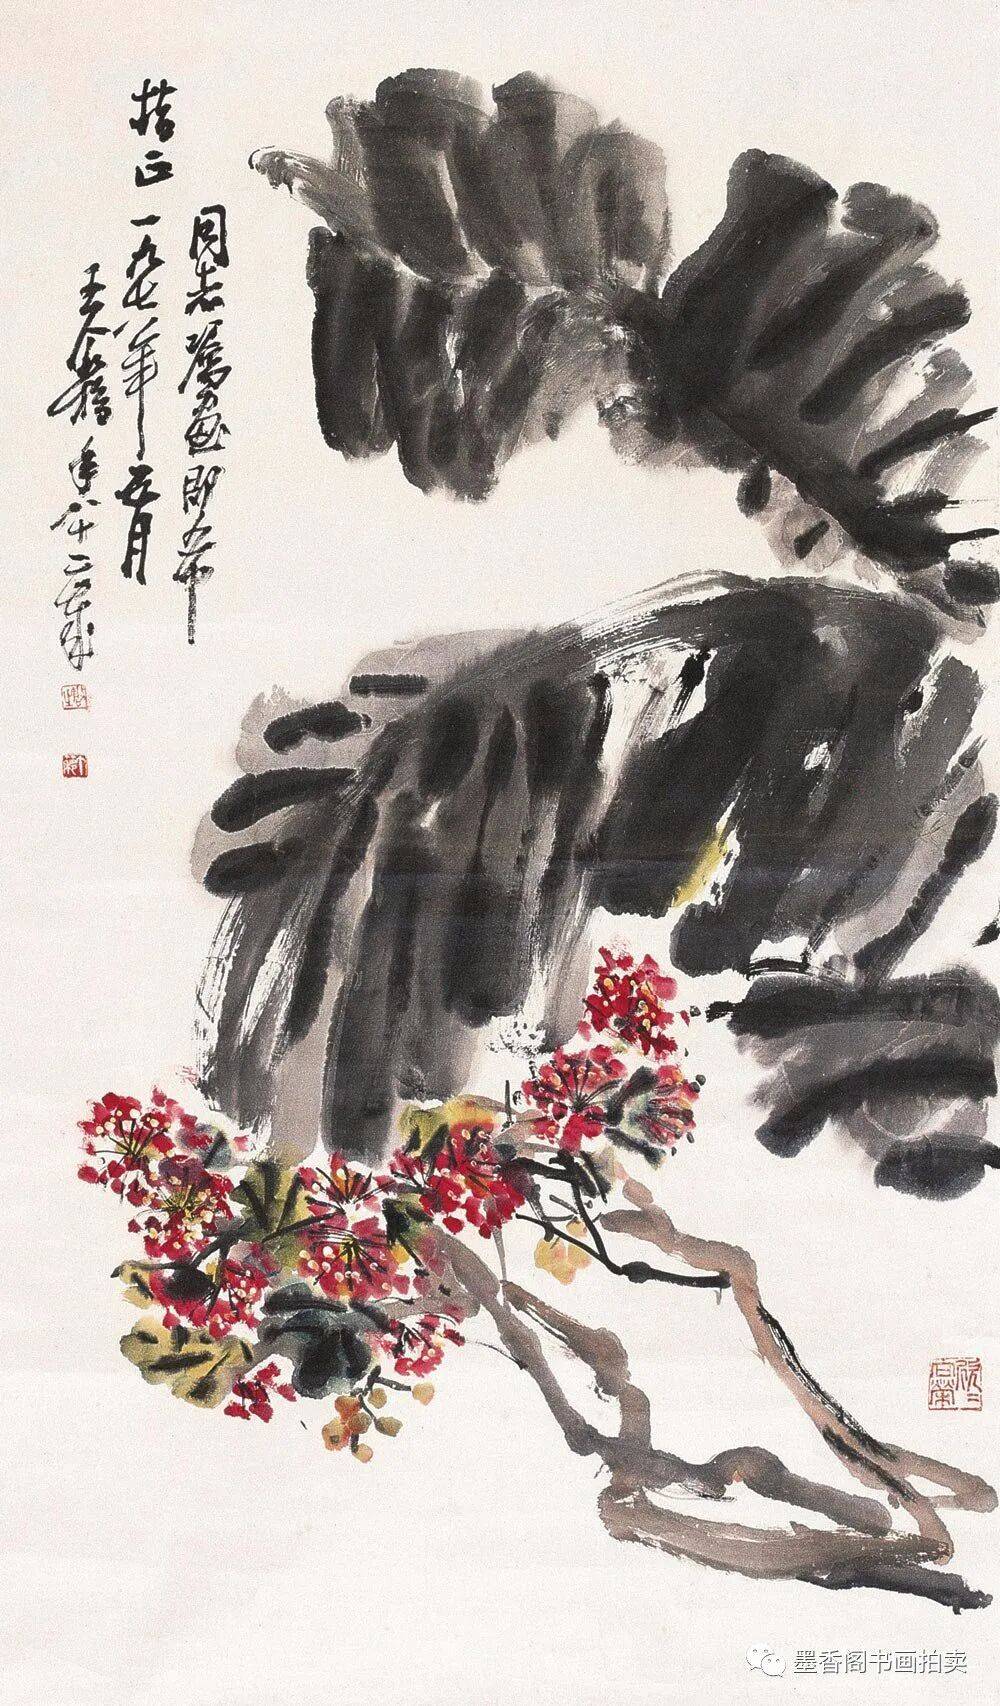 同志属画即希
指正一九七八年五月
王个簃年八十二岁
墨香阁书画拍卖